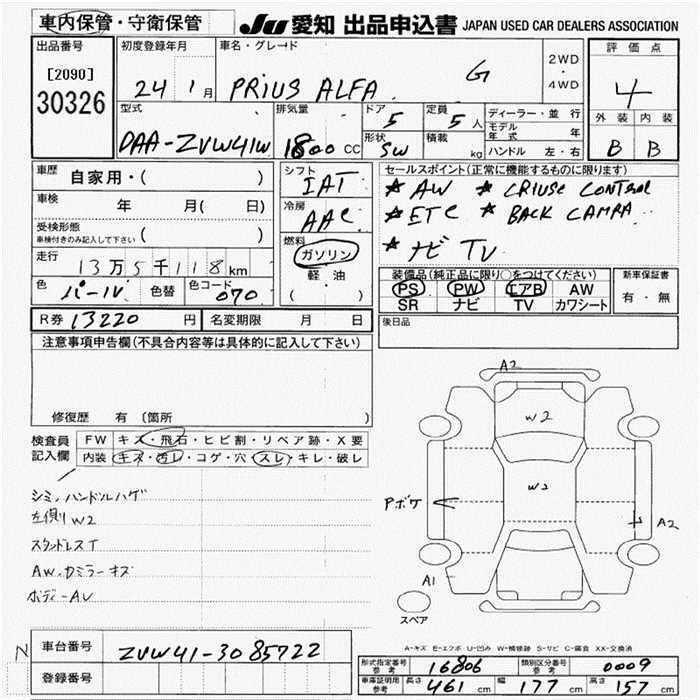 車内保管・守衛保管 JU 愛知 出品申込書 JAPAN USED CAR DEALERS ASSOCIATION
出品番号 初度登録年月 車名・グレード 評価点
[2090]
30326
24 1月 PRIUS ALFA G 2WD・4WD 4
型式 排気量 ドア 定員 ディーラー・並行 外装 内装
DAA-ZVW41W 1800 CC 5 5人 モデル年式 年 B B
形状 SW 積載 kg ハンドル 左・右
車歴 自家用・( )
シフト IAT
セールスポイント(正常に機能するものに限ります)
★ AW ★ CRIUSE CONTROL
★ ETC ★ BACK CAMRA
★ ナビ TV
車検 年 月( 日)
冷房 AAC
受検形態 ( )
車検付きのみ記入して下さい
燃料 ガソリン
軽・油
( )
走行 13万5千118km
色 パール 色替 色コード 070
装備品(純正品に限り○をつけてください) 新車保証書
PS PW エアB AW 有・無
SR ナビ TV カワシート
R券 13220 円 名変期限 月 日
後日品
注意事項申告欄(不具合内容等は具体的に記入して下さい)
修復歴 有 〔箇所 〕
検査員記入欄
FW キズ・飛石・ヒビ割・リペア跡・X要
内装 キズ・汚レ・コゲ・穴・スレ・キレ・破レ
シミ,ハンドルハゲ
左側リW2
スタッドレスT
AW.カミラーキズ
ボディーAU
A2
W2
W2
Pボケ
A2
A1
スペア
A-キズ E-エクボ U-凹み W-補修跡 S-サビ C-腐食 XX-交換済
N 車台番号 ZVW41-3085722
登録番号
形式指定番号 参考 16806 類別区分番号 参考 0009
車庫証明用 参考 長さ 461 cm 幅 177 cm 高さ 157 cm